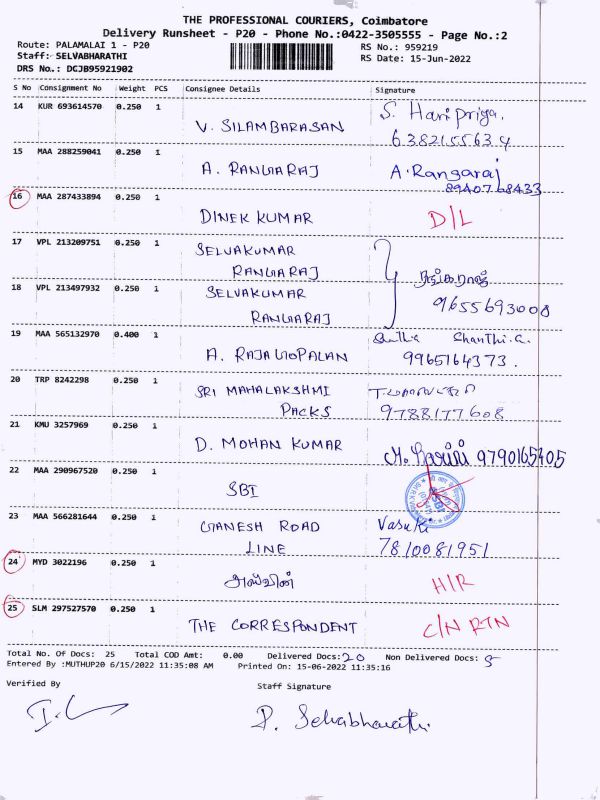 THE PROFESSIONAL COURIERS, Coimbatore
Delivery Runsheet - P20 - Phone No.:0422-3505555 - Page No.:2
Route: PALAMALAI 1 - P20 RS No.: 959219
Staff: SELVABHARATHI RS Date: 15-Jun-2022
DRS No.: DCJB95921902
S No Consignment No Weight PCS Consignee Details Signature
14 KUR 693614570 0.250 1 V. SILAMBARASAN S. Haripriya.
6382155634
15 MAA 288259041 0.250 1 A. RANGARAJ A. Rangaraj
8940768433
16 MAA 287433894 0.250 1 DINEK KUMAR D/L
17 VPL 213209751 0.250 1 SELVAKUMAR
RANGARAJ ரங்கராஜ்
18 VPL 213497932 0.250 1 SELVAKUMAR 9655693008
RANGARAJ
19 MAA 565132970 0.400 1 A. RAJAGOPALAN Shanthi.G.
9965164373.
20 TRP 8242298 0.250 1 SRI MAHALAKSHMI
PACKS 9788177608
21 KMU 3257969 0.250 1 D. MOHAN KUMAR 9790165405
22 MAA 290967520 0.250 1 SBI SBI
23 MAA 566281644 0.250 1 GANESH ROAD Vasuki
LINE 7810081951
24 MYD 3022196 0.250 1 அஸ்வின் H/R
25 SLM 297527570 0.250 1 THE CORRESPONDENT C/N RTN
Total No. Of Docs: 25 Total COD Amt: 0.00 Delivered Docs: 20 Non Delivered Docs: 5
Entered By :MUTHUP20 6/15/2022 11:35:08 AM Printed On: 15-06-2022 11:35:16
Verified By Staff Signature
P. Selvabharathi